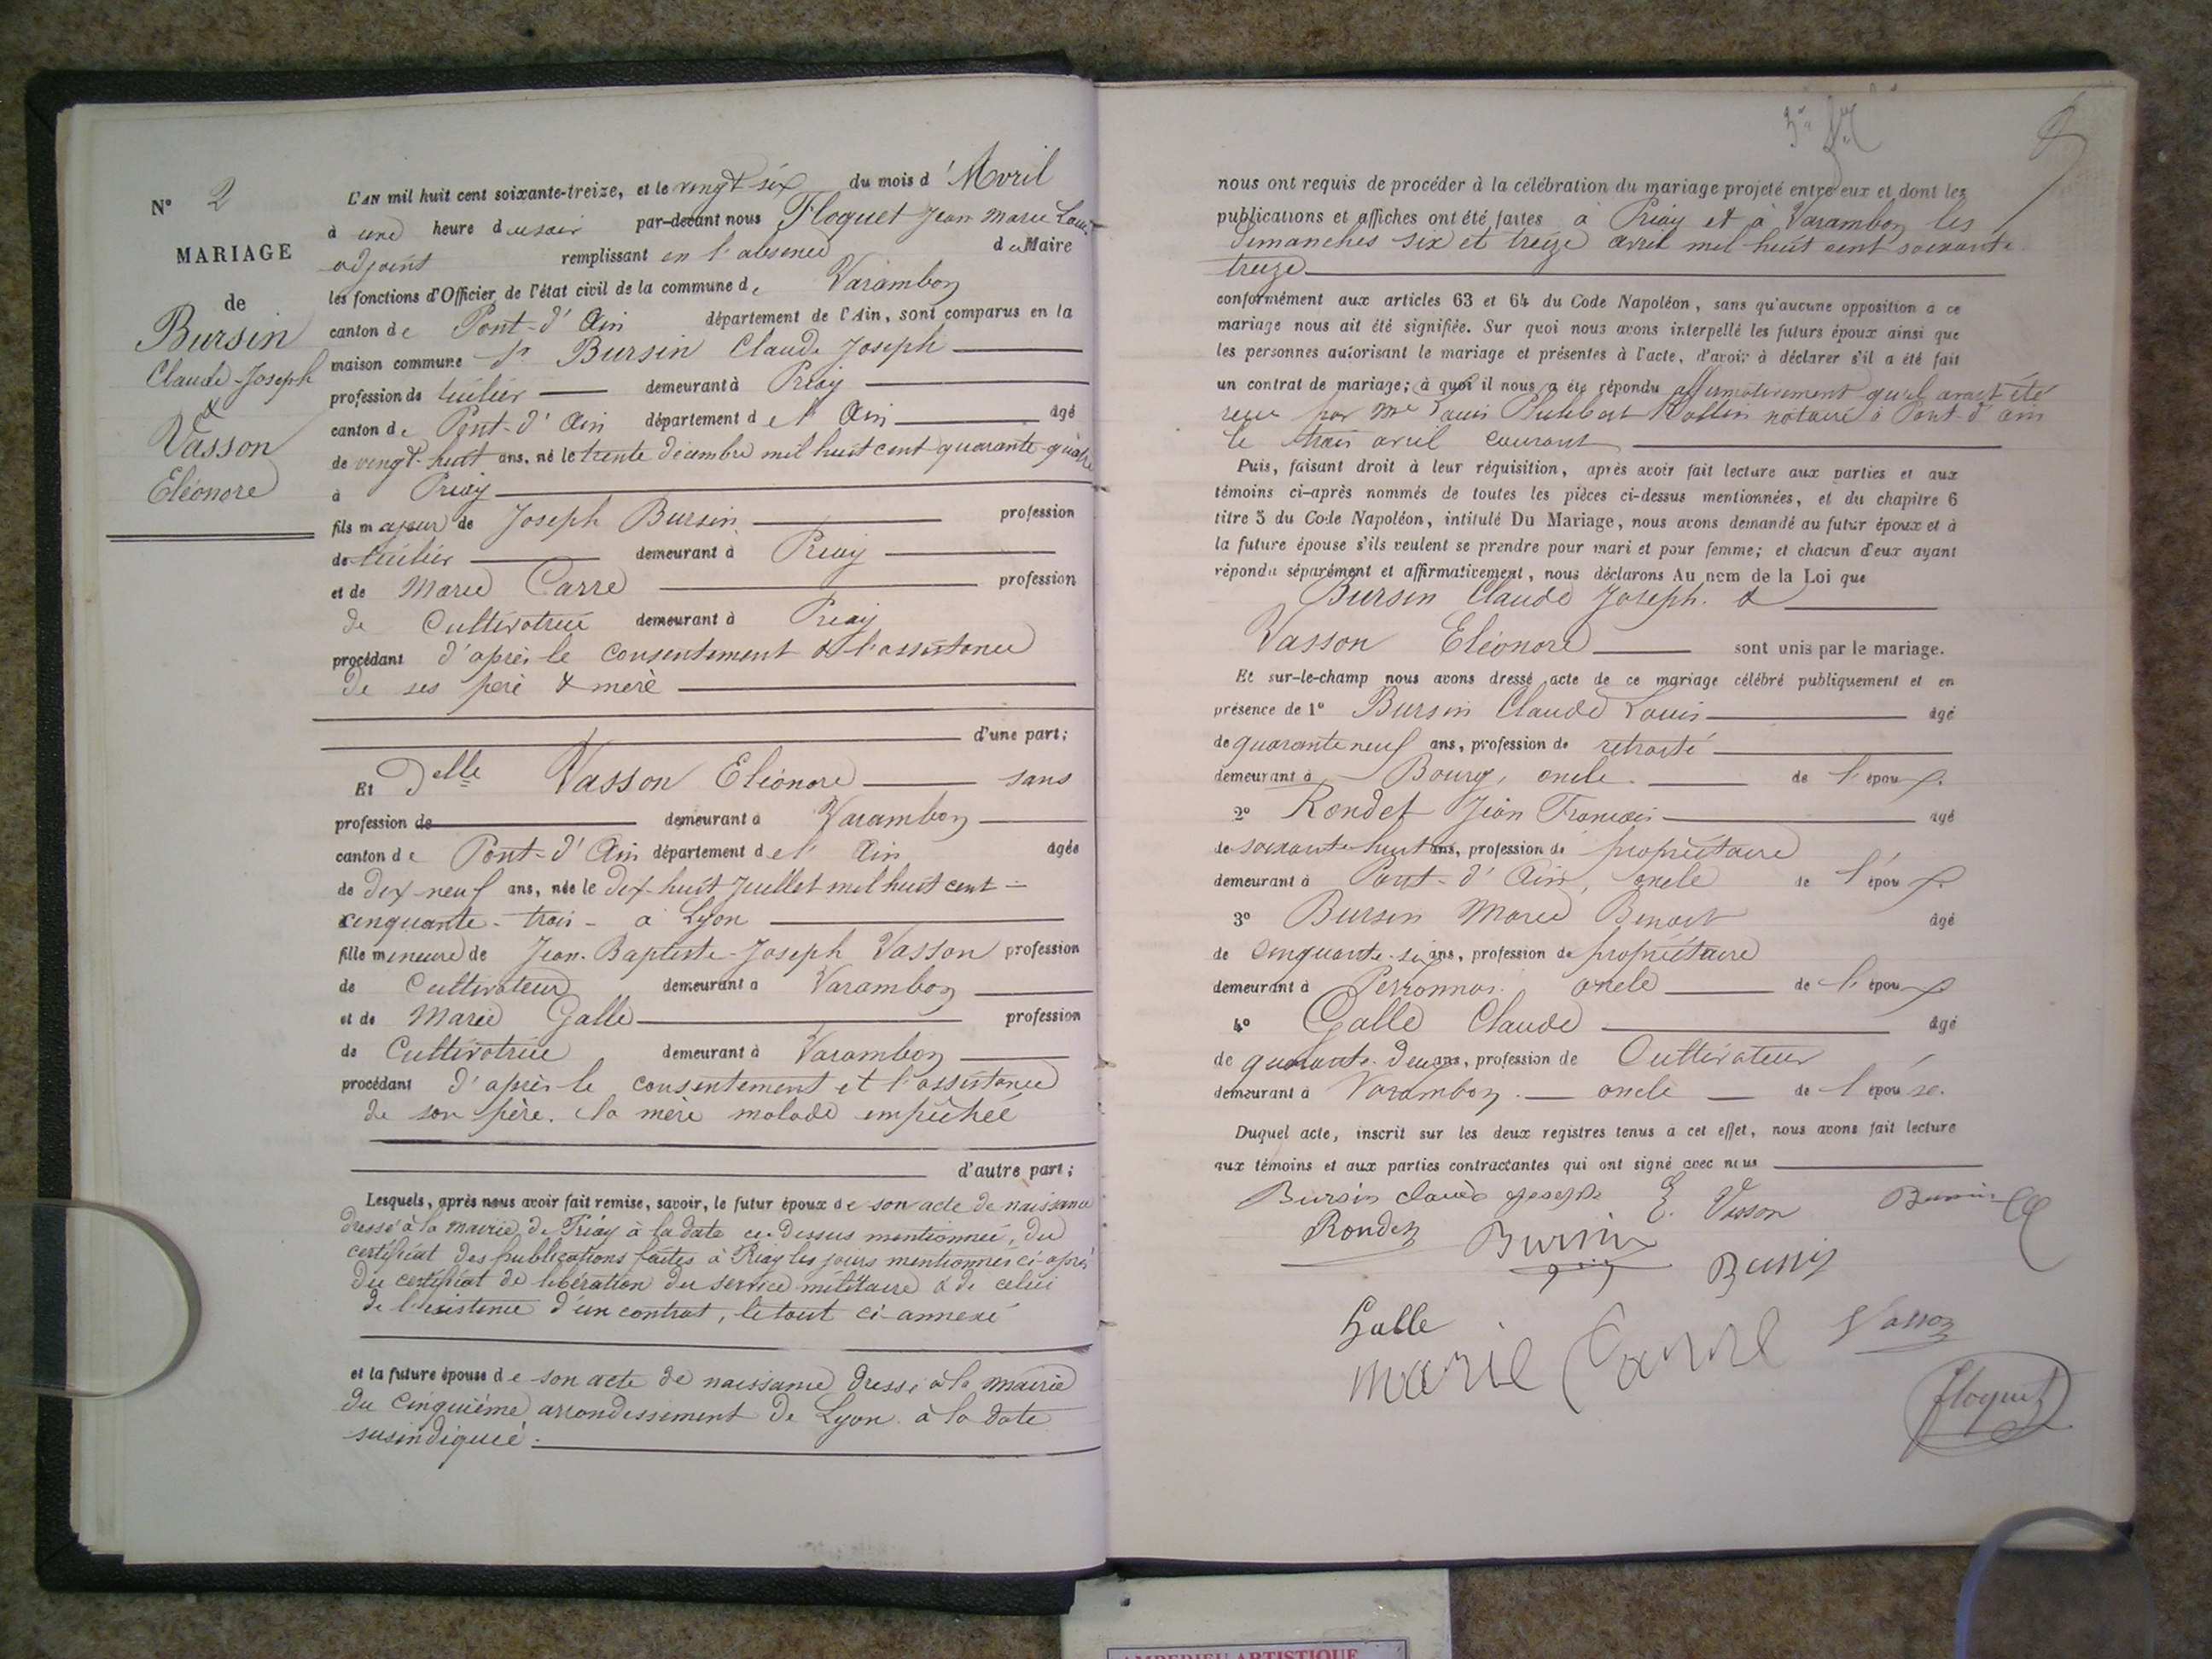 N° 2
MARIAGE
de
Bursin
Claude-Joseph
&
Vasson
Eléonore
L'AN mil huit cent soixante-treize, et le vingt six du mois d'Avril
à une heure du soir par-devant nous Floquet Jean Marie Louis
adjoint remplissant en l'absence du Maire
les fonctions d'Officier de l'état civil de la commune de Varambon
canton de Pont-d'Ain département de l'Ain, sont comparus en la
maison commune Sr Bursin Claude Joseph
profession de tuilier demeurant à Priay
canton de Pont-d'Ain département de l'Ain âgé
de vingt-huit ans, né le trente décembre mil huit cent quarante-quatre
à Priay
fils majeur de Joseph Bursin profession
de tuilier demeurant à Priay
et de Marie Carre profession
de Cultivatrice demeurant à Priay
procédant d'après le consentement & l'assistance
de ses père & mère
d'une part;
Et Delle Vasson Eléonore sans
profession de demeurant à Varambon
canton de Pont-d'Ain département de l'Ain âgée
de dix-neuf ans, née le dix-huit Juillet mil huit cent
cinquante-trois à Lyon
fille mineure de Jean-Baptiste-Joseph Vasson profession
de Cultivateur demeurant à Varambon
et de Marie Galle profession
de Cultivatrice demeurant à Varambon
procédant d'après le consentement et l'assistance
de son père. la mère malade empêchée
d'autre part;
Lesquels, après nous avoir fait remise, savoir, le futur époux de son acte de naissance
dressé à la mairie de Priay à la date ci-dessus mentionnée, du
certificat des publications faites à Priay les jours mentionnés ci-après
du certificat de libération du service militaire & de celui
de l'existence d'un contrat, le tout ci-annexé
et la future épouse de son acte de naissance dressé à la mairie
du cinquième arrondissement de Lyon à la date
susindiquée.
nous ont requis de procéder à la célébration du mariage projeté entre eux et dont les
publications et affiches ont été faites à Priay et à Varambon les
dimanches six et treize avril mil huit cent soixante
treize
conformément aux articles 63 et 64 du Code Napoléon, sans qu'aucune opposition à ce
mariage nous ait été signifiée. Sur quoi nous avons interpellé les futurs époux ainsi que
les personnes autorisant le mariage et présentes à l'acte, d'avoir à déclarer s'il a été fait
un contrat de mariage; à quoi il nous a été répondu affirmativement qu'il avait été
reçu par Me Louis Philibert notaire à Pont-d'ain
le trois avril courant
Puis, faisant droit à leur réquisition, après avoir fait lecture aux parties et aux
témoins ci-après nommés de toutes les pièces ci-dessus mentionnées, et du chapitre 6
titre 5 du Code Napoléon, intitulé Du Mariage, nous avons demandé au futur époux et à
la future épouse s'ils veulent se prendre pour mari et pour femme; et chacun d'eux ayant
répondu séparément et affirmativement, nous déclarons Au nom de la Loi que
Bursin Claude Joseph. &
Vasson Eléonore sont unis par le mariage.
Et sur-le-champ nous avons dressé acte de ce mariage célébré publiquement et en
présence de 1° Bursin Claude Louis âgé
de quarante neuf ans, profession de retraité
demeurant à Bourg, oncle de l'époux.
2° Rondet Jean François âgé
de soixante-huit ans, profession de propriétaire
demeurant à Pont-d'Ain, oncle de l'époux
3° Bursin Marie Benoit âgé
de Cinquante-six ans, profession de propriétaire
demeurant à oncle de l'époux
4° Galle Claude âgé
de quarante-deux ans, profession de Cultivateur
demeurant à Varambon. oncle de l'épouse.
Duquel acte, inscrit sur les deux registres tenus à cet effet, nous avons fait lecture
aux témoins et aux parties contractantes qui ont signé avec nous
Bursin claude joseph E. Vasson Bursin
Rondet Bursin Bursin
Galle Vasson
Marie Carre
Floquet
AMBERIEU ARTISTIQUE